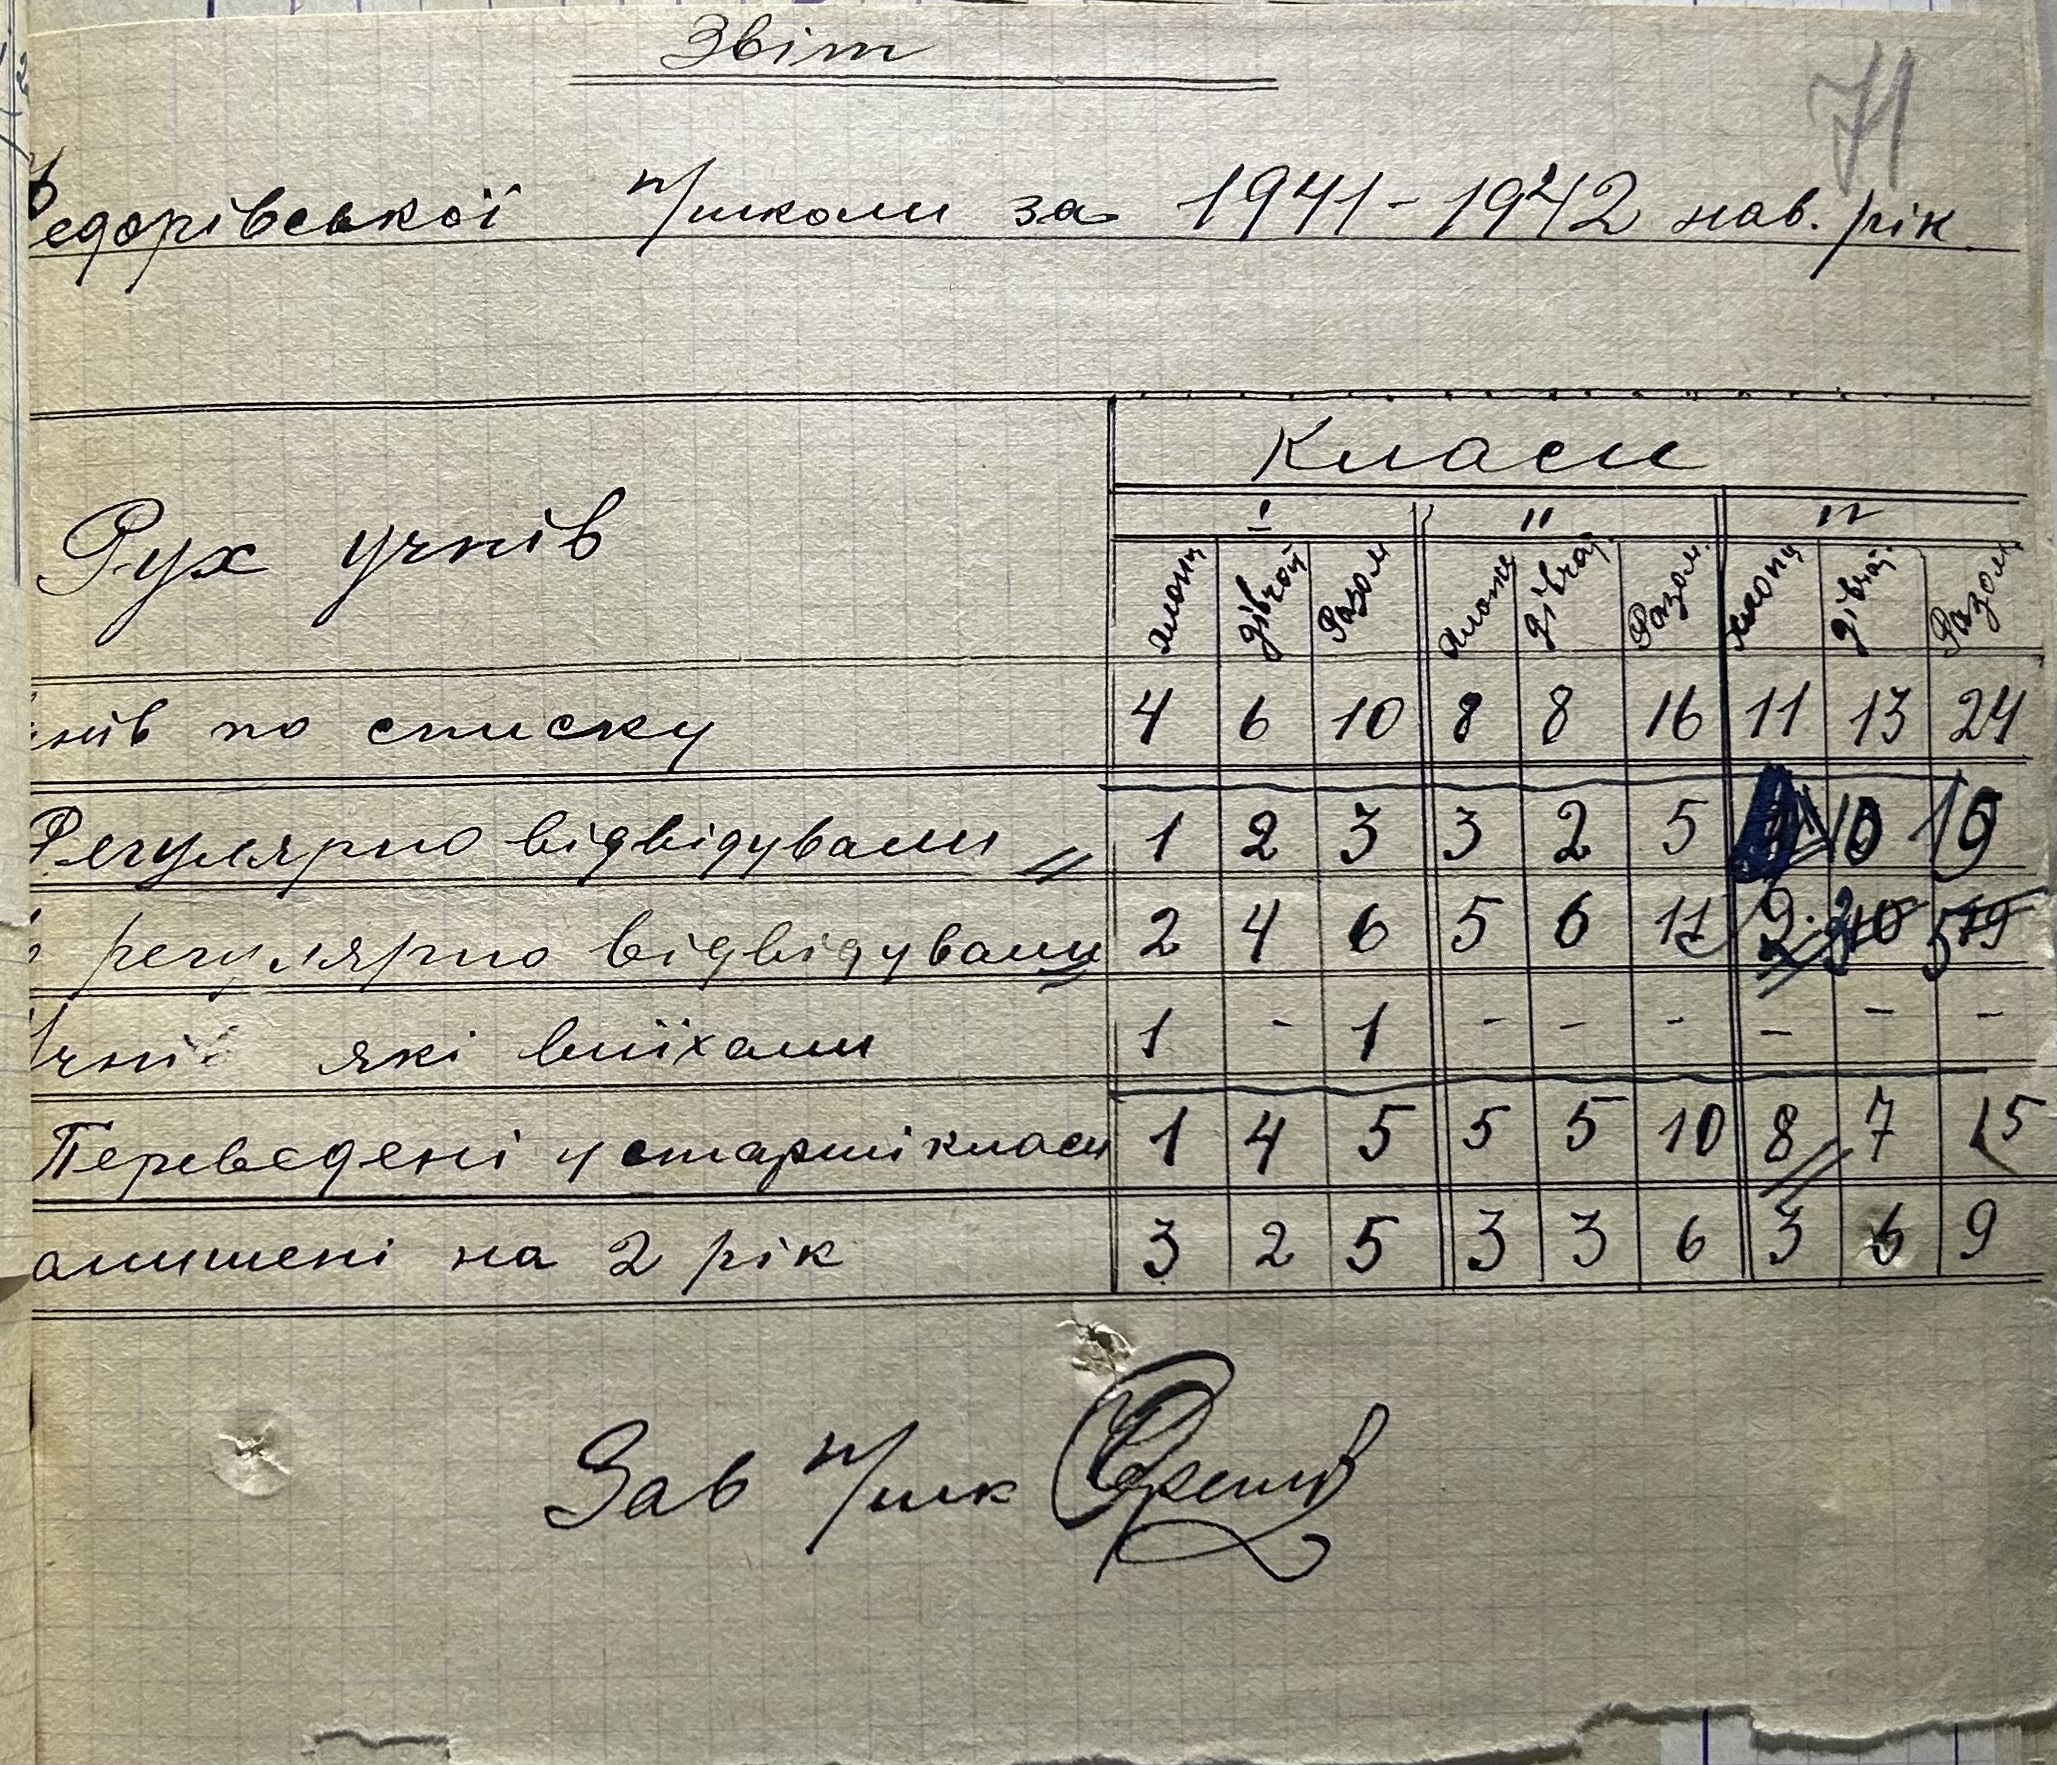 Звіт
71
Федорівської п/школи за 1941-1942 нав. рік
Класи
Рух учнів
I II
хлопц дівчат Разом хлопц дівчат. Разом. хлопц дівчат. Разом
нів по списку 4 6 10 8 8 16 11 13 24
Регулярно відвідували 1 2 3 3 2 5 10 19
регулярно відвідували 2 4 6 5 6 11 2 3 5
Учнів які виїхали 1 - 1 - - - - - -
Переведені у старші класи 1 4 5 5 5 10 8 7 15
алишені на 2 рік 3 2 5 3 3 6 3 6 9
Зав п/шк